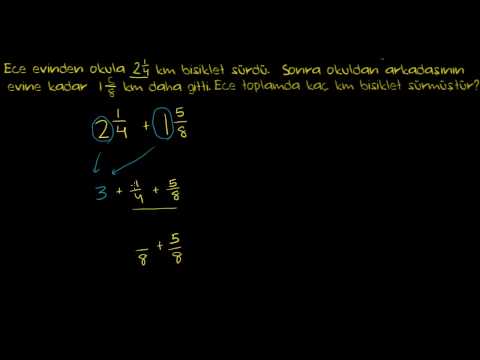 Ece evinden okula 2 1/4 km bisiklet sürdü. Sonra okuldan arkadasının
evine kadar 1 5/8 km daha gitti. Ece toplamda kaç km bisiklet sürmüştür?
2 1/4 + 1 5/8
3 + 1/4 + 5/8
/8 + 5/8